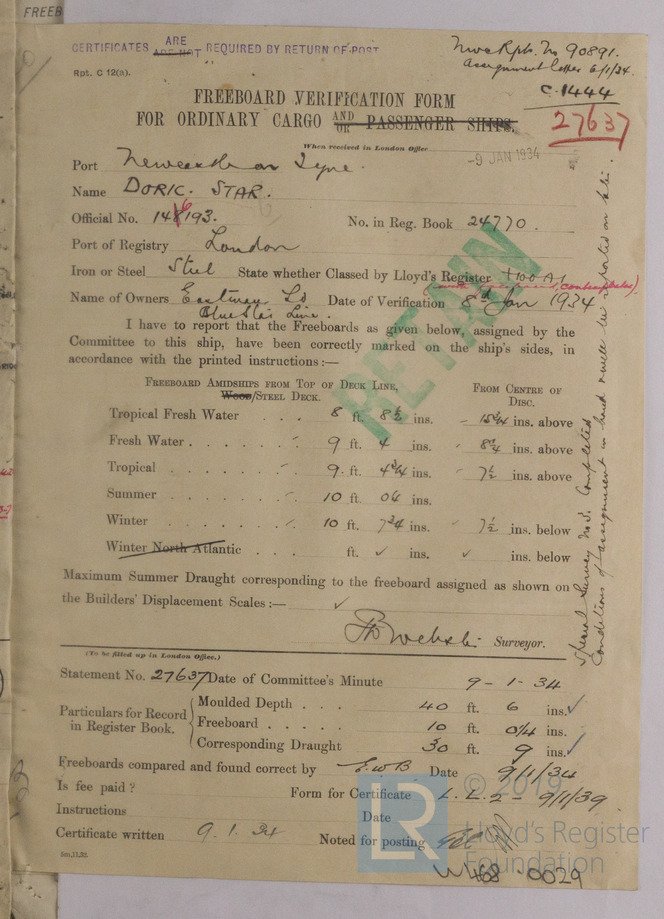 FREEB
CERTIFICATES ARE ARE NOT REQUIRED BY RETURN OF POST
Nwc Rpt. No 90891.
Assignment letter 6/1/34.
Rpt. C 12(a).
C.1444
27637
FREEBOARD VERIFICATION FORM
FOR ORDINARY CARGO AND OR PASSENGER SHIPS.
When received in London Office
-9 JAN 1934
Port Newcastle on Tyne.
Name DORIC STAR.
Official No. 148193. 6
No. in Reg. Book 24770.
Port of Registry London
Iron or Steel Steel State whether Classed by Lloyd's Register +100 A1
(contemplated).
Name of Owners Eastman Ld Date of Verification 8th Jan 1934
Blue Star Line.
I have to report that the Freeboards as given below, assigned by the
Committee to this ship, have been correctly marked on the ship's sides, in
accordance with the printed instructions:—
FREEBOARD AMIDSHIPS FROM TOP OF DECK LINE, FROM CENTRE OF
WOOD/STEEL DECK. DISC.
Tropical Fresh Water 8 ft. 8½ ins. 15¾ ins. above
Fresh Water 9 ft. 4 ins. 8¾ ins. above
Tropical 9 ft. 4¾ ins. 7½ ins. above
Summer 10 ft. 0¼ ins.
Winter 10 ft. 7¾ ins. 7½ ins. below
Winter North Atlantic ft. ✓ ins. ✓ ins. below
Maximum Summer Draught corresponding to the freeboard assigned as shown on
the Builders' Displacement Scales:— ✓
Surveyor.
RETAIN
Special Survey No 3. Completed
Conditions of assignment in hand & will be reported on later.
(To be filled up in London Office.)
Statement No. 27637 Date of Committee's Minute 9-1-34
Particulars for Record in Register Book.
Moulded Depth 40 ft. 6 ins. ✓
Freeboard 10 ft. 0¼ ins.
Corresponding Draught 30 ft. 9 ins. ✓
Freeboards compared and found correct by E.W.B Date 9/1/34
Is fee paid? Form for Certificate L.L.2 - 9/1/39.
Instructions Date
Certificate written 9.1.34 Noted for posting
5m,11,32.
LR
© 2019
Lloyd's Register
Foundation
W468-0029